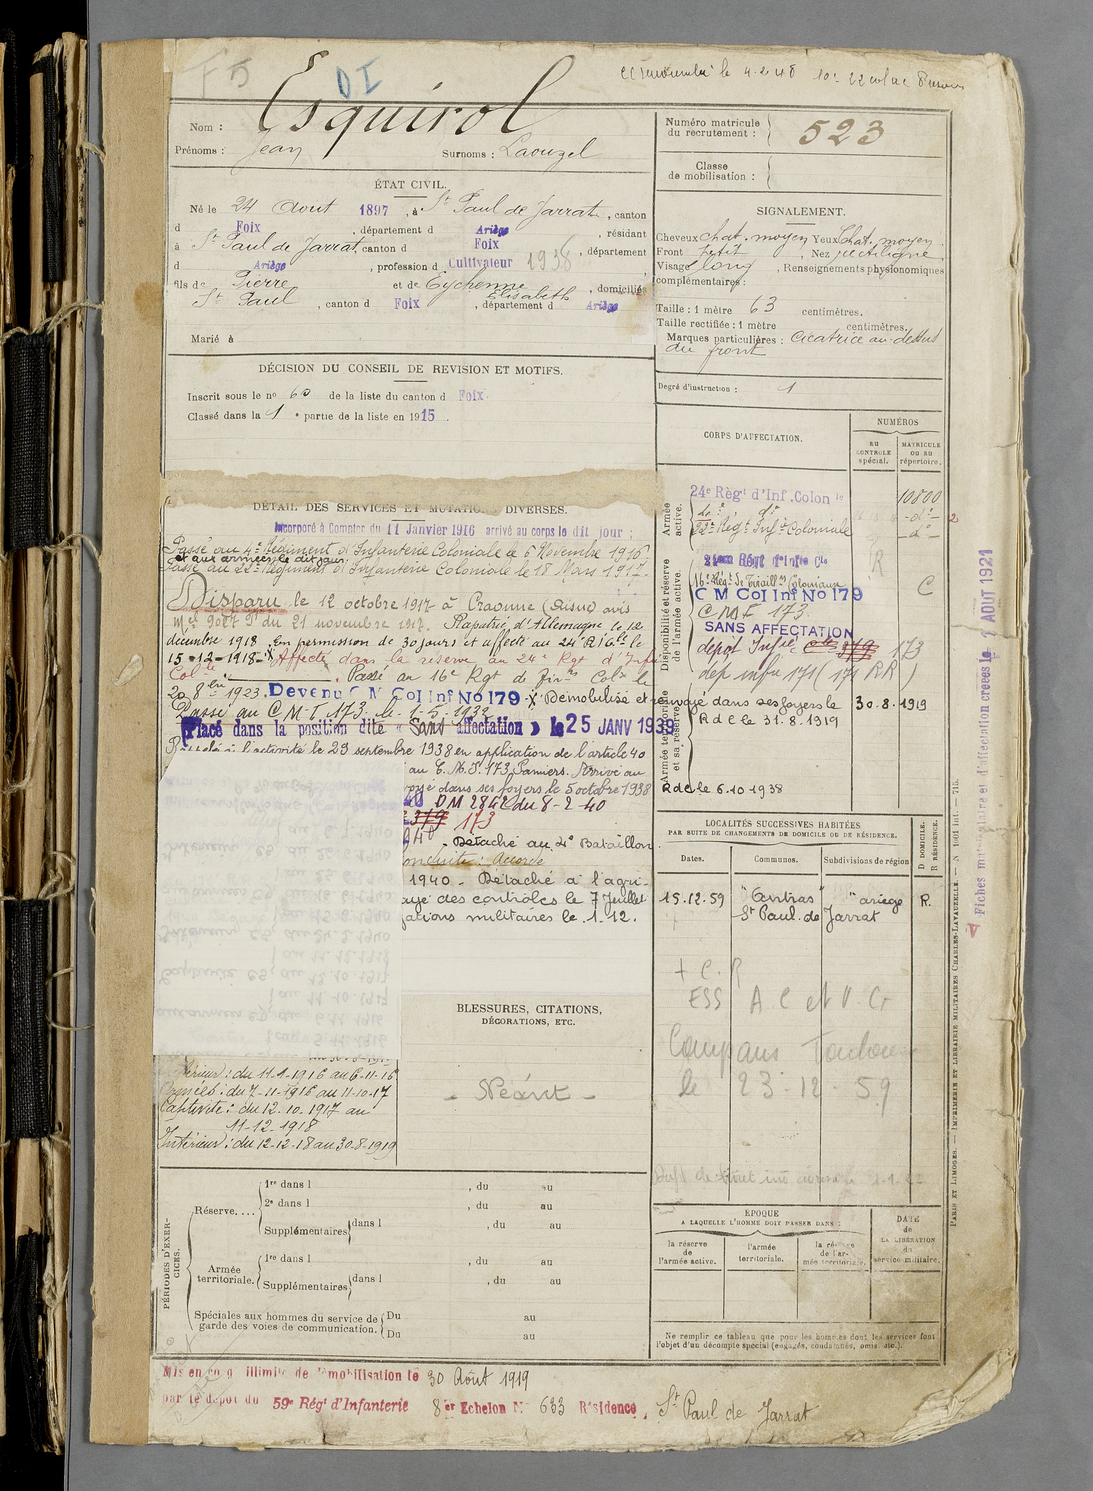 F5
DI
le 4.2.48
Esquirol
Nom :
Prénoms : Jean
Surnoms : Laouzel
Numéro matricule
du recrutement : 523
Classe
de mobilisation :
ÉTAT CIVIL.
Né le 24 Aout 1897, à St Paul de Jarrat, canton
d Foix, département d Ariège, résidant
à St Paul de Jarrat, canton d Foix, département
d Ariège, profession d Cultivateur 1938
fils de Pierre et de Eychenne Elisabeth, domiciliés
St Paul, canton d Foix, département d Ariège
Marié à
SIGNALEMENT.
Cheveux chat. moyen Yeux Chat. moyen
Front petit, Nez rectiligne
Visage long, Renseignements physionomiques
complémentaires :
Taille : 1 mètre 63 centimètres.
Taille rectifiée : 1 mètre centimètres.
Marques particulières : Cicatrice au-dessus
du front
Degré d'instruction : 1
DÉCISION DU CONSEIL DE REVISION ET MOTIFS.
Inscrit sous le no 60 de la liste du canton d Foix.
Classé dans la 1e partie de la liste en 1915.
DÉTAIL DES SERVICES ET MUTATIONS DIVERSES.
Incorporé à Compter du 11 Janvier 1916 arrivé au corps le dit jour :
Passé au 4e Régiment d'Infanterie Coloniale le 6 Novembre 1916
et aux armées le dit jour.
Passé au 22e Régiment d'Infanterie Coloniale le 18 Mars 1917.
Disparu le 12 octobre 1917 à Craonne (Aisne) avis
du 21 novembre 1917. Rapatrié d'Allemagne le 12
décembre 1918. En permission de 30 jours et affecté au 24e RIC le
15-12-1918 - Affecté dans la réserve au 24e Rgt d'Infie
Colle. Passé au 16e Rgt de Colx le
20 8bre 1923. Devenu C M Col Inf No 179 - X Démobilisé et renvoyé dans ses foyers le 30.8.1919
Passé au C.M.I. 173. le 7-5-1932
RdC le 31.8.1919
Placé dans la position dite « Sans affectation » le 25 JANV 1939
Rappelé à l'activité le 29 septembre 1938 en application de l'article 40
au C.M.I. 173 Pamiers. Arrivé au
dans ses foyers le 5 octobre 1938
RdC le 6.10.1938
40 DM 2842 du 8-2-40
319 173
40 - Détaché au 4e Bataillon
conduite : Accordé
1940 - Détaché à l'agri-
des contrôles le 7 Juillet
militaires le 1.12.
CORPS D'AFFECTATION.
NUMÉROS
AU CONTROLE spécial.
MATRICULE OU AU répertoire.
Armée active.
24e Règt d'Inf. Colon le 10800
4e do -do-
22e Régt Inft Coloniale -do-
Disponibilité et réserve de l'armée active.
24eme Régt d'Infie Cle R
16e Régt de Tirailleurs Coloniaux C
C M Col Inf No 179
C M I 173.
SANS AFFECTATION
dépot Infie 319 173
dep infie 171 (171 RR)
Armée territoriale et sa réserve.
LOCALITÉS SUCCESSIVES HABITÉES
PAR SUITE DE CHANGEMENTS DE DOMICILE OU DE RÉSIDENCE.
Dates. Communes. Subdivisions de région
D DOMICILE. R RÉSIDENCE.
15.12.59 "Antras" "ariège R.
St Paul de Jarrat
+ C. R
ESS A.C et V. Cr
Compans Toulouse
le 23-12-59
BLESSURES, CITATIONS,
DÉCORATIONS, ETC.
- Néant -
Intérieur : du 11-1-1916 au 6-11-16
Armées : du 7-11-1916 au 11-10-17
Captivité : du 12.10.1917 au
11-12-1918
Intérieur : du 12-12-18 au 30-8-1919
PÉRIODES D'EXERCICES.
Réserve....
1re dans l , du au
2e dans l , du au
Supplémentaires dans l , du au
Armée territoriale.
1re dans l , du au
Supplémentaires dans l , du au
Spéciales aux hommes du service de
garde des voies de communication.
Du au
Du au
EPOQUE
A LAQUELLE L'HOMME DOIT PASSER DANS :
la réserve de l'armée active.
l'armée territoriale.
la réserve de l'armée territoriale.
DATE DE LA LIBÉRATION du service militaire.
Ne remplir ce tableau que pour les hommes dont les services font
l'objet d'un décompte spécial (engagés, condamnés, omis, etc.).
Mis en congé illimité de démobilisation le 30 Août 1919
par le dépôt du 59e Régt d'Infanterie 8er Echelon No 633 Résidence, St Paul de Jarrat
Fiches matriculaire et d'affectation créées le 1 AOUT 1921
PARIS ET LIMOGES. — IMPRIMERIE ET LIBRAIRIE MILITAIRES CHARLES-LAVAUZELLE. — N 1001 int. — 715.